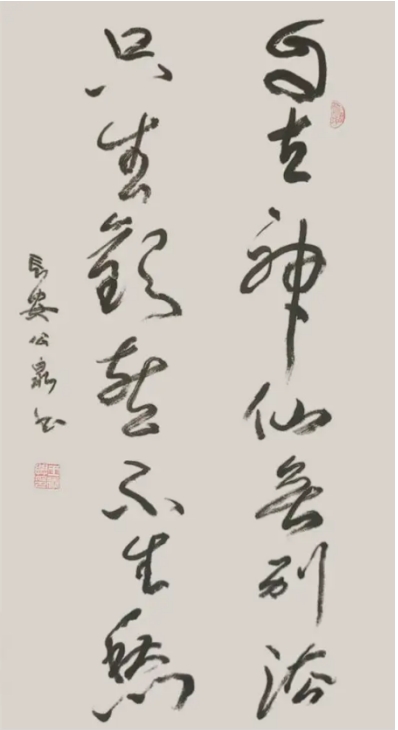 自古神仙無別法
只生歡喜不生愁
長安公泉書